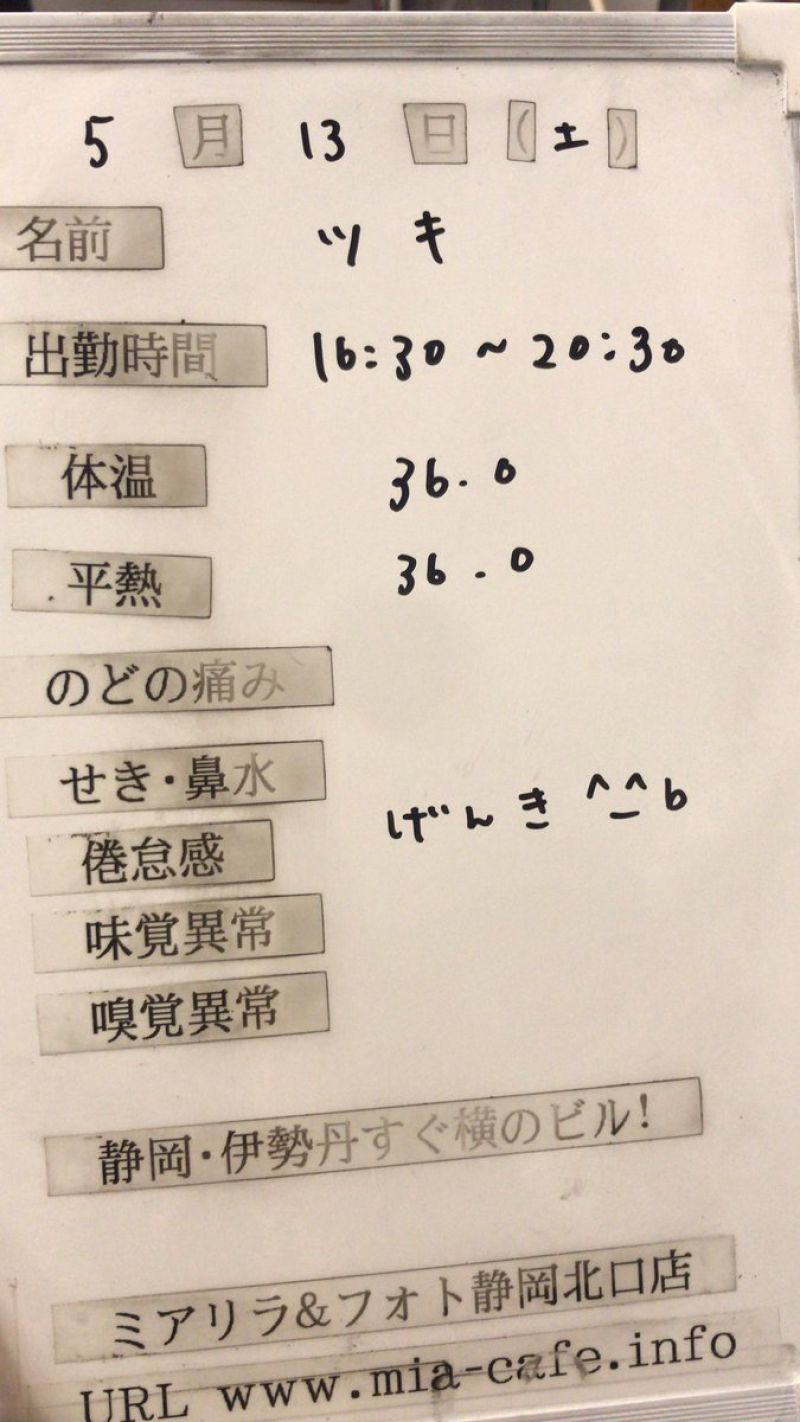 5月13日(土)
名前 ツキ
出勤時間 16:30~20:30
体温 36.0
平熱 36.0
のどの痛み
せき・鼻水
げんき ^_^b
倦怠感
味覚異常
嗅覚異常
静岡・伊勢丹すぐ横のビル!
ミアリラ&フォト静岡北口店
URL www.mia-cafe.info